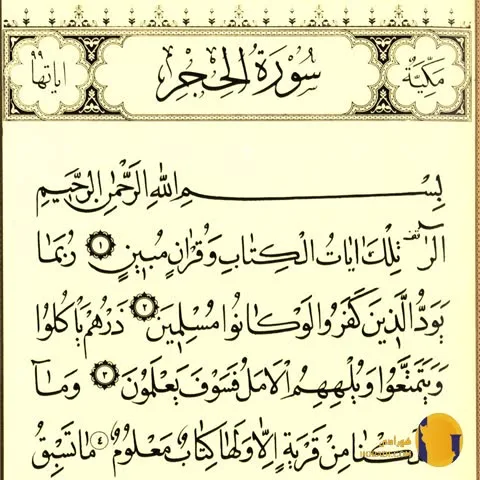 مكية سورة الحجر اياتها ٩٩
بسم الله الرحمن الرحيم
الر تلك ايات الكتاب وقران مبين ١ ربما
يود الذين كفروا لو كانوا مسلمين ٢ ذرهم ياكلوا
ويتمتعوا ويلههم الامل فسوف يعلمون ٣ وما
من قرية الا ولها كتاب معلوم ٤ ما تسبق